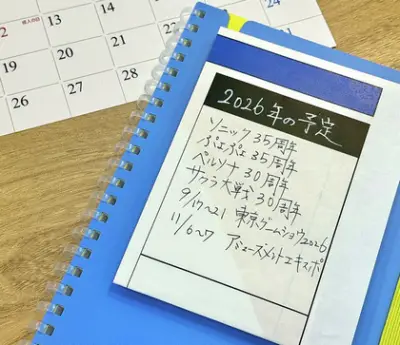 13
19 20 21
26 27 28
2026年の予定
ソニック35周年
ぷよぷよ35周年
ペルソナ30周年
サクラ大戦30周年
9/17~21 東京ゲームショウ2026
11/6~7 アミューズメントエキスポ